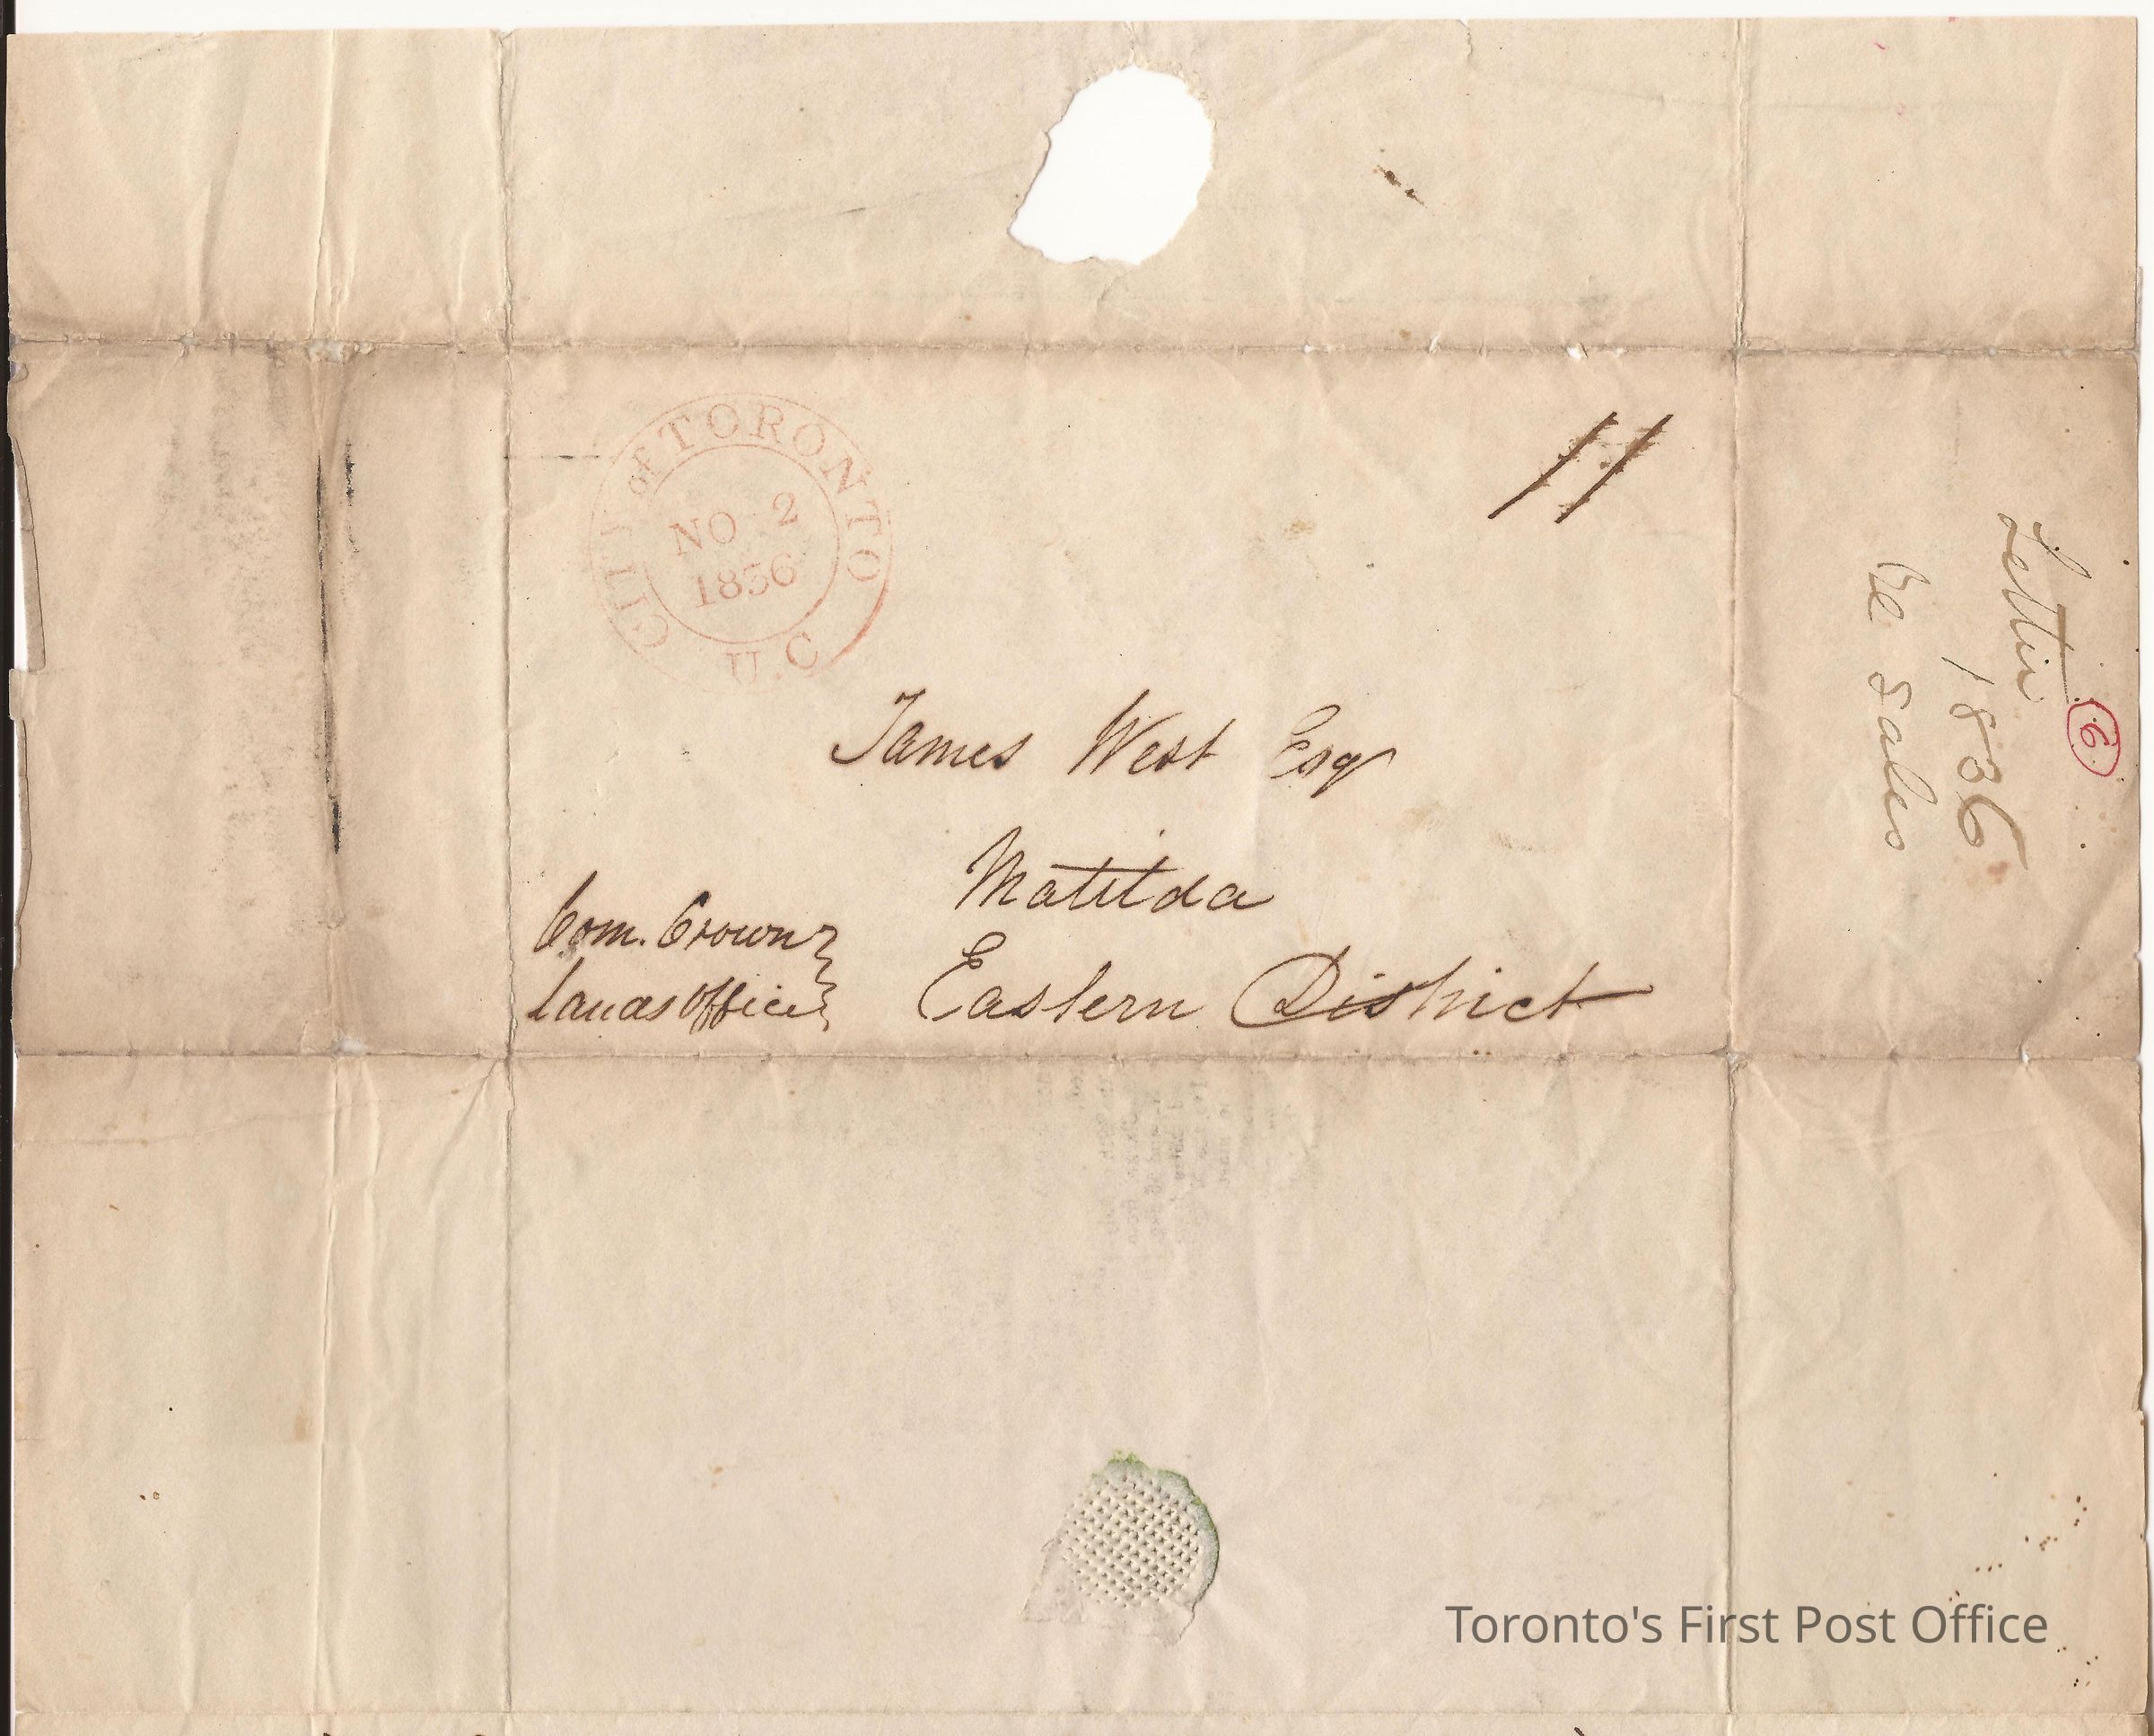 CITY of TORONTO
NO 2
1836
U.C
11
James West Esqr
Matilda
Eastern District
Com. Crown
Lands Office
6
Letter
1836
Sales
Toronto's First Post Office